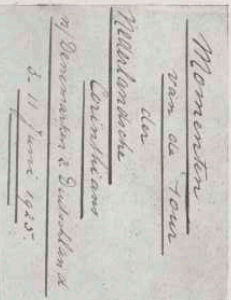 Momenten
van de tour
der
Nederlandsche
Corinthians
n/ Denemarken & Duitschland
11 Juni 1925.